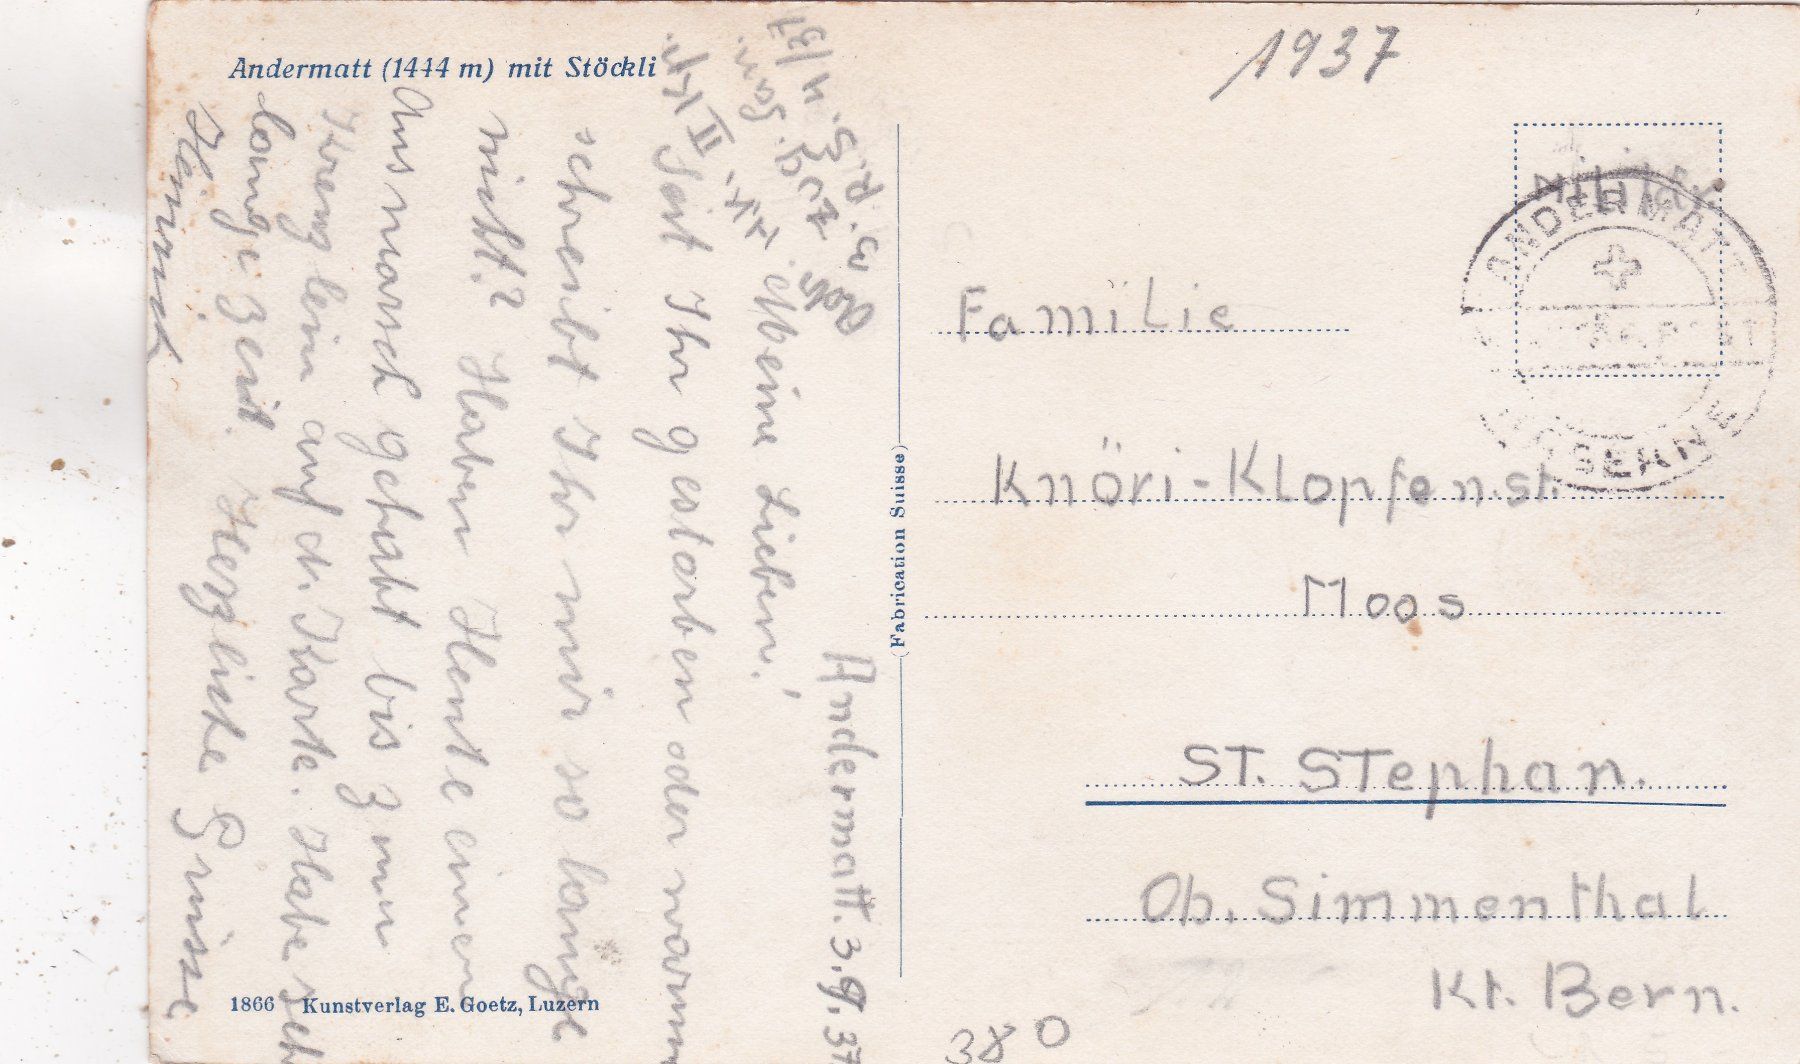 Andermatt (1444 m) mit Stöckli
1937
Militär
ANDERMATT
Familie
Knöri-Klopfenst.
Moos
ST. STephan.
Ob. Simmenthal
Kt. Bern.
(Fabrication Suisse)
Andermatt. 3.9.37
Meine Lieben!
Seit Ihr gestorben oder warum
schreibt Ihr mir so lange
nicht? Haben Heute einen
Ausmarsch gehabt bis zum
Kreuzlein auf d. Karte. Habe seh
lange Zeit. Herzliche Grüsse
Heinrich
R. S. 4/37
Zug.
II
1866 Kunstverlag E. Goetz, Luzern
380